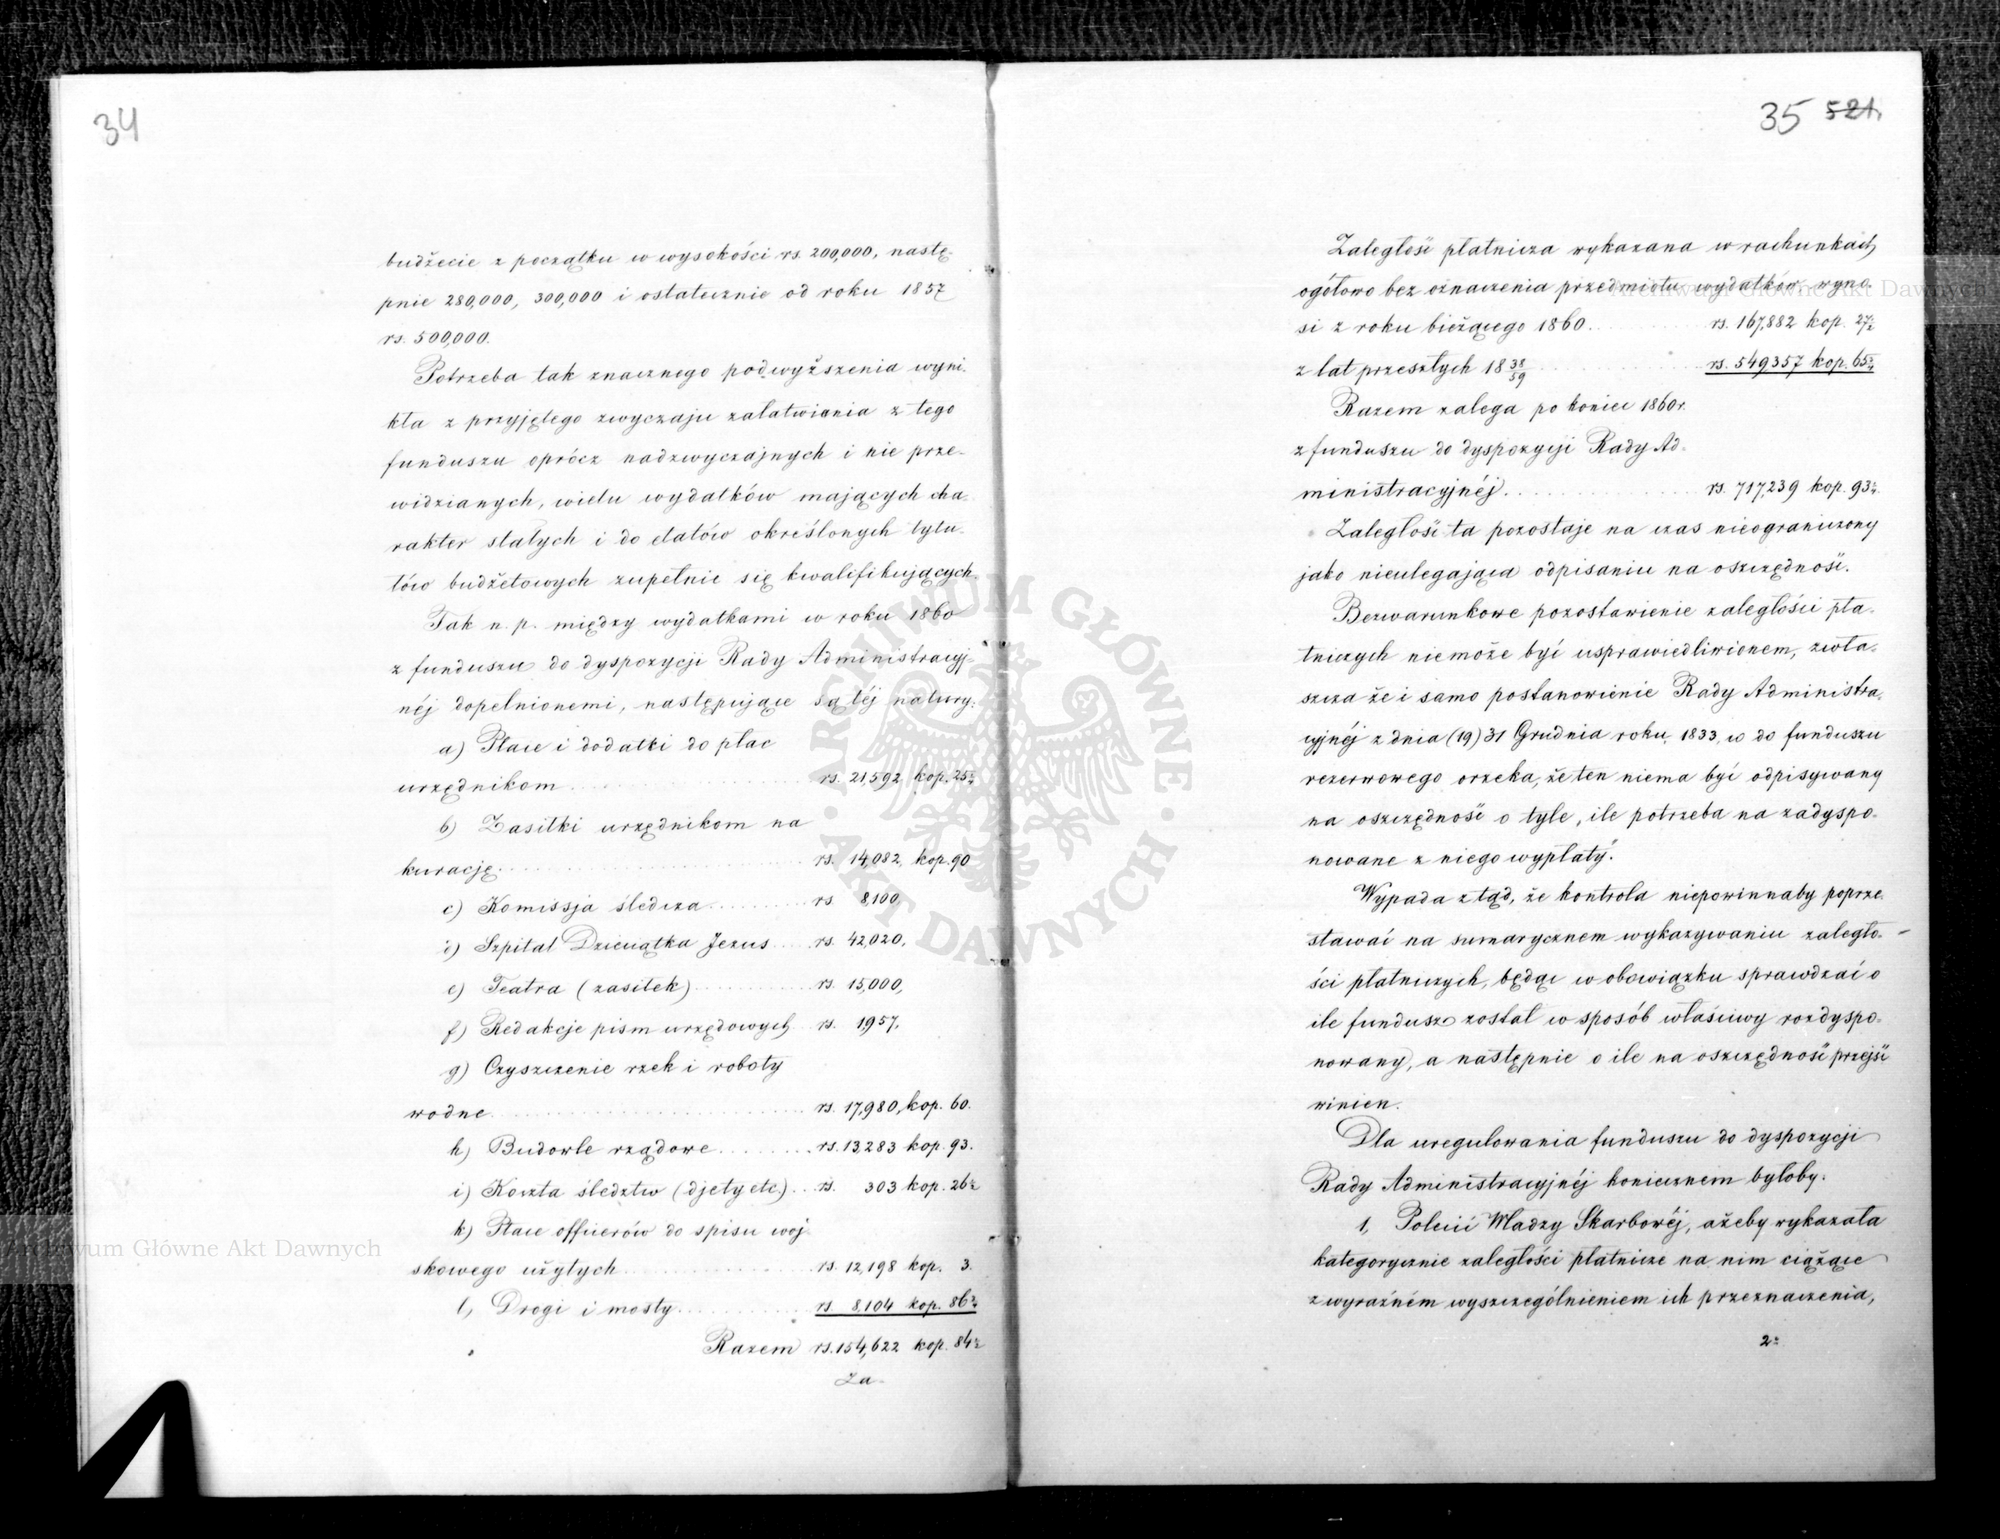 34
budżecie z początku w wysokości rs. 200,000, nastę-
pnie 280,000, 300,000 i ostatecznie od roku 1857
rs. 500,000.
Potrzeba tak znacznego podwyższenia wyni-
kła z przyjętego zwyczaju załatwiania z tego
funduszu oprócz nadzwyczajnych i nie prze-
widzianych, wielu wydatków mających cha-
rakter stałych i do etatów określonych tytu-
łów budżetowych zupełnie się kwalifikujących.
Tak n. p. między wydatkami w roku 1860
z funduszu do dyspozycji Rady Administracyj-
néj dopełnionemi, następujące są téj natury:
a) Płace i dodatki do płac
urzędnikom rs. 21,592 kop. 25
b) Zasiłki urzędnikom na
kurację rs. 14,082, kop. 90
c) Komissja śledcza rs 8,100,
d) Szpital Dzieciątka Jezus rs. 42,020,
e) Teatra (zasiłek) rs. 15,000,
f) Redakcje pism urzędowych rs. 1,957,
g) Czyszczenie rzek i roboty
wodne rs. 17,980, kop. 60.
h) Budowle rządowe rs. 13,283 kop. 93.
i) Koszta śledztw (djety etc.) rs. 303 kop. 26½
k) Płace officerów do spisu woj-
skowego użytych rs. 12,198 kop. 3.
l, Drogi i mosty rs. 8,104 kop. 86½
Razem rs. 154,622 kop. 84½
Za-
35 521.
Zaległość płatnicza wykazana w rachunkach
ogółowo bez oznaczenia przedmiotu wydatków wyno-
si z roku bieżącego 1860 rs. 167,882 kop. 27½
z lat przeszłych 18 38/59 rs. 549,357 kop. 65
Razem zalega po koniec 1860 r.
z funduszu do dyspozycji Rady Ad-
ministracyjnéj rs. 717,239 kop. 93
Zaległość ta pozostaje na czas nieograniczony
jako nieulegająca odpisaniu na oszczędność.
Bezwarunkowe pozostawienie zaległości pła-
tniczych niemoże być usprawiedliwionem, zwła-
szcza że i samo postanowienie Rady Administra-
cyjnéj z dnia (19) 31 Grudnia roku 1833, w do funduszu
rezerwowego orzeka, że ten niema być odpisywany
na oszczędność o tyle, ile potrzeba na zadyspo-
nowane z niego wypłaty.
Wypada ztąd, że kontrola niepowinnaby poprze-
stawać na sumarycznem wykazywaniu zaległo-
ści płatniczych, będąc w obowiązku sprawdzać o
ile fundusz został w sposób właściwy rozdyspo-
nowany, a następnie o ile na oszczędność przejść
winien.
Dla uregulowania funduszu do dyspozycji
Rady Administracyjnéj koniecznem byłoby:
1, Polecić Władzy Skarbowéj, ażeby wykazała
kategorycznie zaległości płatnicze na nim ciążące
z wyraźném wyszczególnieniem ich przeznaczenia,
2.
ARCHIWUM GŁÓWNE
AKT DAWNYCH
Archiwum Główne Akt Dawnych
Archiwum Główne Akt Dawnych